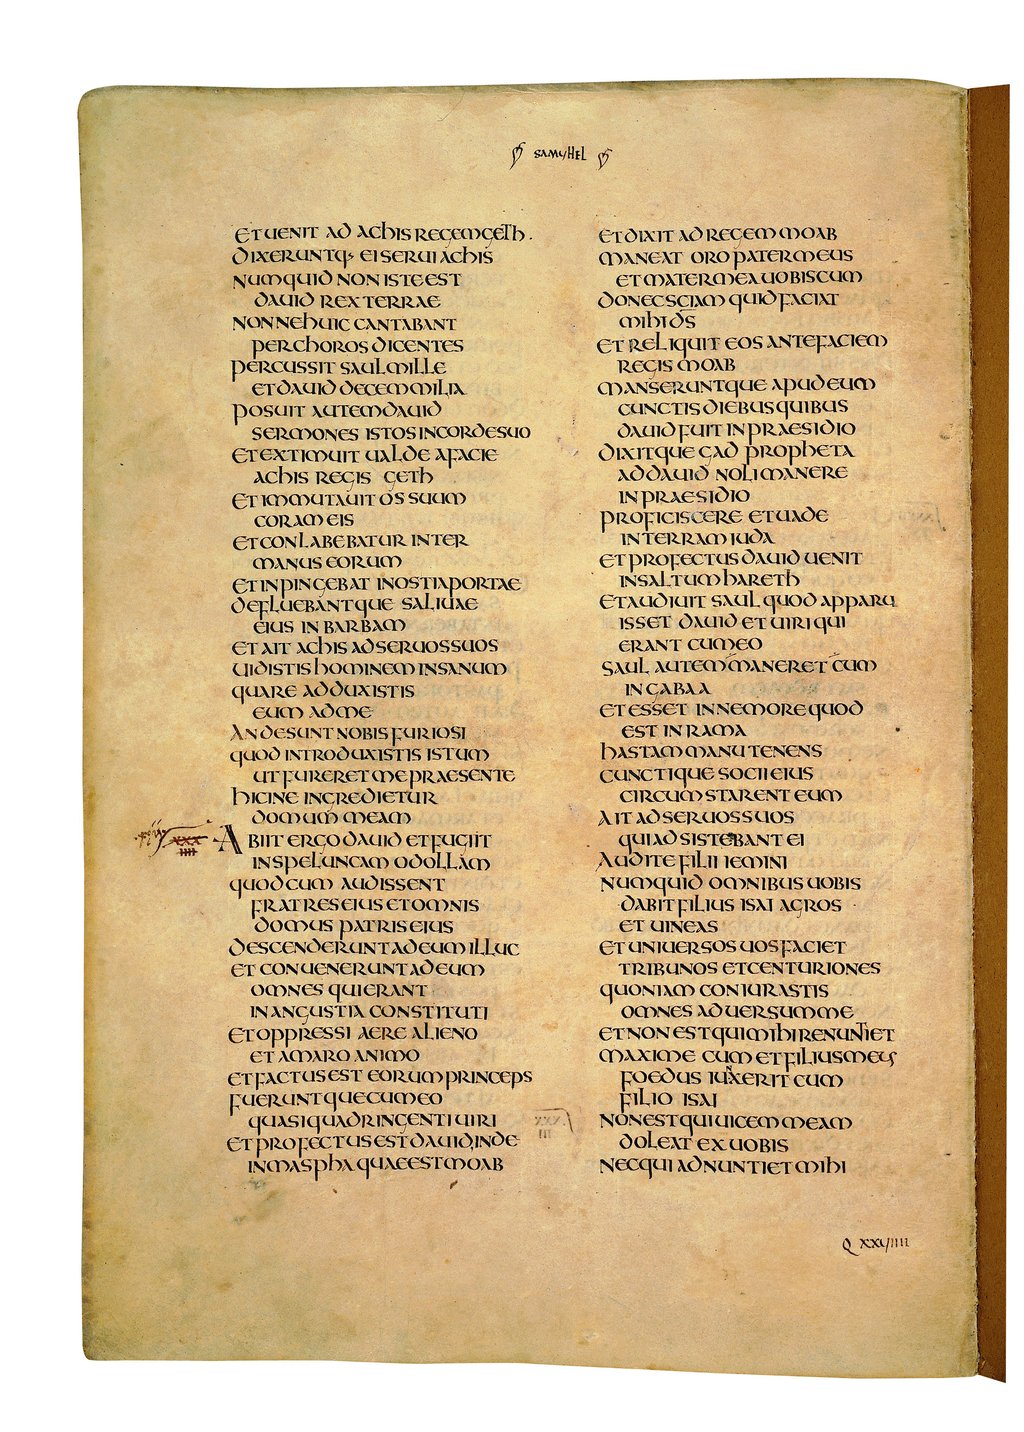 SAMUHEL
ET UENIT AD ACHIS REGEM GETH.
DIXERUNTQ· EI SERUI ACHIS
NUMQUID NON ISTE EST
DAUID REX TERRAE
NONNE HUIC CANTABANT
PER CHOROS DICENTES
PERCUSSIT SAUL MILLE
ET DAUID DECEM MILIA
POSUIT AUTEM DAUID
SERMONES ISTOS IN CORDE SUO
ET EXTIMUIT UALDE A FACIE
ACHIS REGIS GETH
ET IMMUTAUIT OS SUUM
CORAM EIS
ET CONLABEBATUR INTER
MANUS EORUM
ET INPINGEBAT IN OSTIA PORTAE
DEFLUEBANTQUE SALIUAE
EIUS IN BARBAM
ET AIT ACHIS AD SERUOS SUOS
UIDISTIS HOMINEM INSANUM
QUARE ADDUXISTIS
EUM AD ME
AN DESUNT NOBIS FURIOSI
QUOD INTRODUXISTIS ISTUM
UT FURERET ME PRAESENTE
HICINE INGREDIETUR
DOMUM MEAM
ABIIT ERGO DAUID ET FUGIIT
IN SPELUNCAM ODOLLAM
QUOD CUM AUDISSENT
FRATRES EIUS ET OMNIS
DOMUS PATRIS EIUS
DESCENDERUNT AD EUM ILLUC
ET CONUENERUNT AD EUM
OMNES QUI ERANT
IN ANGUSTIA CONSTITUTI
ET OPPRESSI AERE ALIENO
ET AMARO ANIMO
ET FACTUS EST EORUM PRINCEPS
FUERUNTQUE CUM EO
QUASI QUADRINGENTI UIRI
ET PROFECTUS EST DAUID INDE
IN MASPHA QUAE EST MOAB
ET DIXIT AD REGEM MOAB
MANEAT ORO PATER MEUS
ET MATER MEA UOBISCUM
DONEC SCIAM QUID FACIAT
MIHI D̅S̅
ET RELIQUIT EOS ANTE FACIEM
REGIS MOAB
MANSERUNTQUE APUD EUM
CUNCTIS DIEBUS QUIBUS
DAUID FUIT IN PRAESIDIO
DIXITQUE GAD PROPHETA
AD DAUID NOLI MANERE
IN PRAESIDIO
PROFICISCERE ET UADE
IN TERRAM IUDA
ET PROFECTUS DAUID UENIT
IN SALTUM HARETH
ET AUDIUIT SAUL QUOD APPARU
ISSET DAUID ET UIRI QUI
ERANT CUM EO
SAUL AUTEM MANERET CUM
IN GABAA
ET ESSET IN NEMORE QUOD
EST IN RAMA
HASTAM MANU TENENS
CUNCTIQUE SOCII EIUS
CIRCUMSTARENT EUM
AIT AD SERUOS SUOS
QUI ADSISTEBANT EI
AUDITE FILII IEMINI
NUMQUID OMNIBUS UOBIS
DABIT FILIUS ISAI AGROS
ET UINEAS
ET UNIUERSOS UOS FACIET
TRIBUNOS ET CENTURIONES
QUONIAM CONIURASTIS
OMNES ADUERSUM ME
ET NON EST QUI MIHI RENUNTIET
MAXIME CUM ET FILIUS MEUS
FOEDUS IUNXERIT CUM
FILIO ISAI
NON EST QUI UICEM MEAM
DOLEAT EX UOBIS
NEC QUI ADNUNTIET MIHI
Q XXUIIII